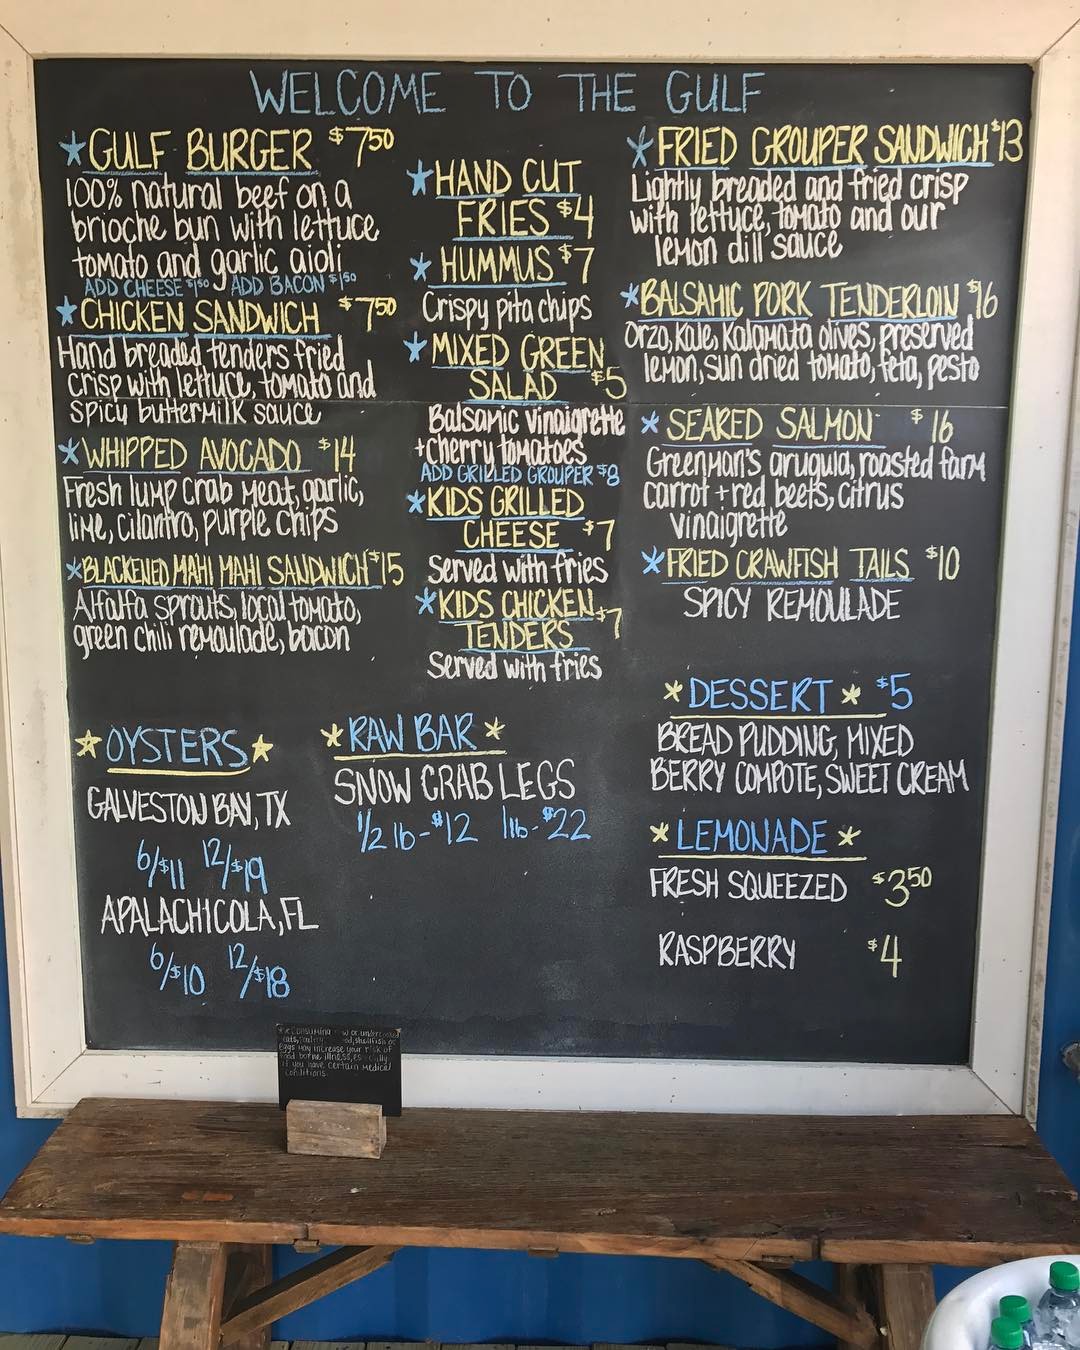 WELCOME TO THE GULF
* GULF BURGER $7.50
100% natural beef on a
brioche bun with lettuce
tomato and garlic aioli
ADD CHEESE $1.50 ADD BACON $1.50
* CHICKEN SANDWICH $7.50
Hand breaded tenders fried
crisp with lettuce, tomato and
spicy buttermilk sauce
* WHIPPED AVOCADO $14
Fresh lump crab meat, garlic,
lime, cilantro, purple chips
* BLACKENED MAHI MAHI SANDWICH $15
Alfalfa sprouts, local tomato,
green chili remoulade, bacon
* HAND CUT
FRIES $4
* HUMMUS $7
Crispy pita chips
* MIXED GREEN
SALAD $5
Balsamic vinaigrette
+ cherry tomatoes
ADD GRILLED GROUPER $8
* KIDS GRILLED
CHEESE $7
Served with fries
* KIDS CHICKEN
TENDERS $7
Served with fries
* FRIED GROUPER SANDWICH $13
Lightly breaded and fried crisp
with lettuce, tomato and our
lemon dill sauce
* BALSAMIC PORK TENDERLOIN $16
Orzo, kale, Kalamata olives, preserved
lemon, sun dried tomato, feta, pesto
* SEARED SALMON $16
Greenman's arugula, roasted farm
carrot + red beets, citrus
vinaigrette
* FRIED CRAWFISH TAILS $10
SPICY REMOULADE
* OYSTERS *
GALVESTON BAY, TX
6/$11 12/$19
APALACHICOLA, FL
6/$10 12/$18
* RAW BAR *
SNOW CRAB LEGS
1/2 lb - $12 1 lb - $22
* DESSERT * $5
BREAD PUDDING, MIXED
BERRY COMPOTE, SWEET CREAM
* LEMONADE *
FRESH SQUEEZED $3.50
RASPBERRY $4
consuming or
shellfish or
eggs may increase your risk of
food borne illness,
if you have certain medical
conditions